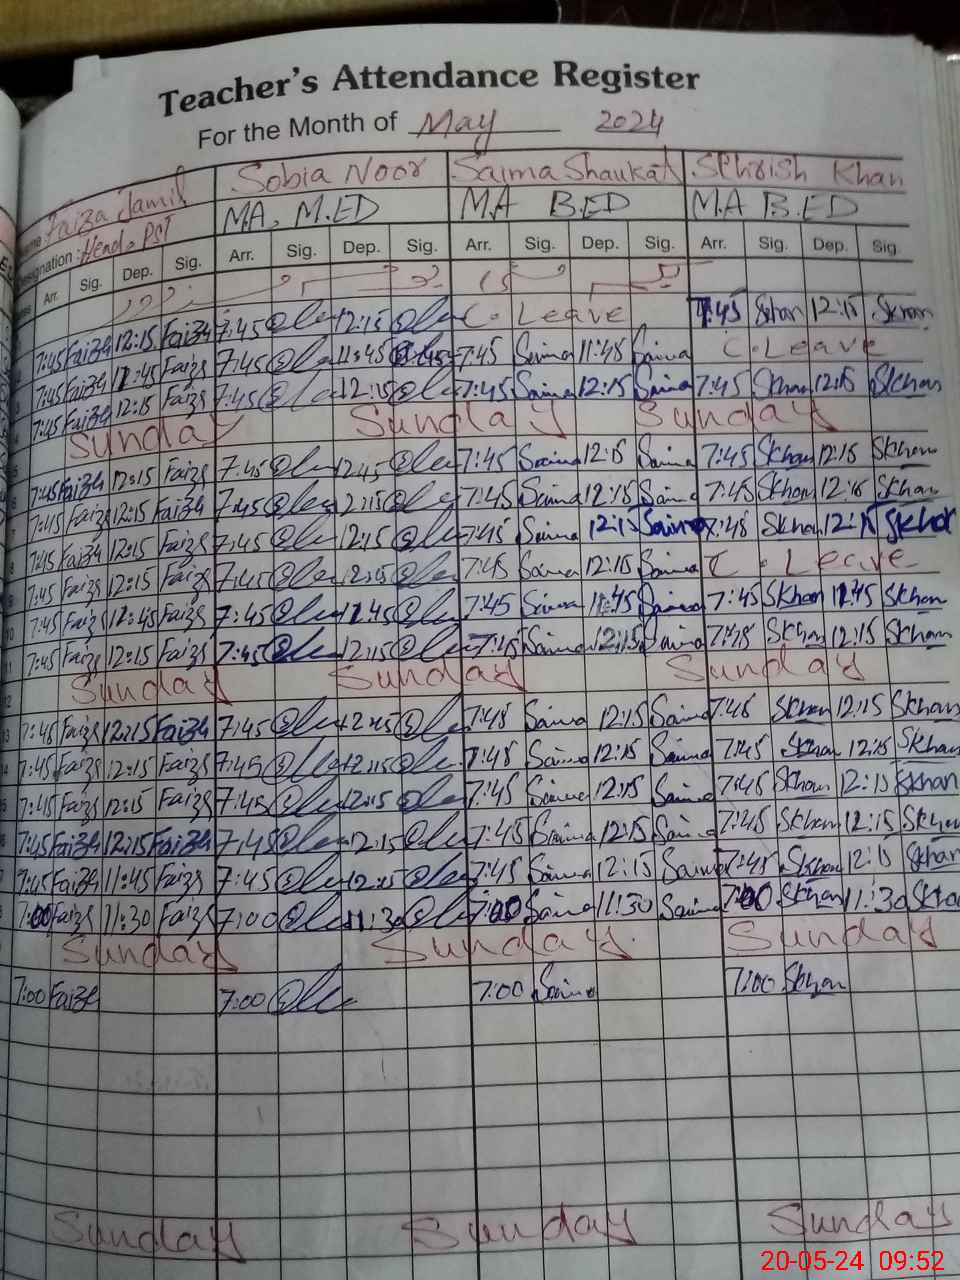 Teacher's Attendance Register
For the Month of May 2024
Faiza Jamil Sobia Noor Saima Shaukat Sehrish Khan
Designation: Head, PST MA, M.ED MA B.ED M.A B.ED
Arr. Sig. Dep. Sig. Arr. Sig. Dep. Sig. Arr. Sig. Dep. Sig. Arr. Sig. Dep. Sig.
7:45 Faiza 12:15 Faiza 7:45 12:15 C. Leave 7:45 Skhan 12:15 Skhan
7:45 Faiza 11:45 Faiza 7:45 11:45 7:45 Saima 11:45 Saima C. Leave
7:45 Faiza 12:15 Faiza 7:45 12:15 7:45 Saima 12:15 Saima 7:45 Skhan 12:15 Skhan
Sunday Sunday Sunday
7:45 Faiza 12:15 Faiza 7:45 12:45 7:45 Saima 12:15 Saima 7:45 Skhan 12:15 Skhan
7:45 Faiza 12:15 Faiza 7:45 12:15 7:45 Saima 12:15 Saima 7:45 Skhan 12:15 Skhan
7:45 Faiza 12:15 Faiza 7:45 12:15 7:45 Saima 12:15 Saima 7:45 Skhan 12:15 Skhan
7:45 Faiza 12:15 Faiza 7:45 12:15 7:45 Saima 12:15 Saima C. Leave
7:45 Faiza 11:45 Faiza 7:45 11:45 7:45 Saima 11:45 Saima 7:45 Skhan 11:45 Skhan
7:45 Faiza 12:15 Faiza 7:45 12:15 7:45 Saima 12:15 Saima 7:45 Skhan 12:15 Skhan
Sunday Sunday Sunday
7:45 Faiza 12:15 Faiza 7:45 12:15 7:45 Saima 12:15 Saima 7:45 Skhan 12:15 Skhan
7:45 Faiza 12:15 Faiza 7:45 12:15 7:45 Saima 12:15 Saima 7:45 Skhan 12:15 Skhan
7:45 Faiza 12:15 Faiza 7:45 12:15 7:45 Saima 12:15 Saima 7:45 Skhan 12:15 Skhan
7:45 Faiza 12:15 Faiza 7:45 12:15 7:45 Saima 12:15 Saima 7:45 Skhan 12:15 Skhan
7:45 Faiza 11:45 Faiza 7:45 12:15 7:45 Saima 12:15 Saima 7:45 Skhan 12:15 Skhan
7:00 Faiza 11:30 Faiza 7:00 11:30 7:00 Saima 11:30 Saima 7:00 Skhan 11:30 Skhan
Sunday Sunday Sunday
7:00 Faiza 7:00 7:00 Saima 7:00 Skhan
Sunday Sunday Sunday
20-05-24 09:52